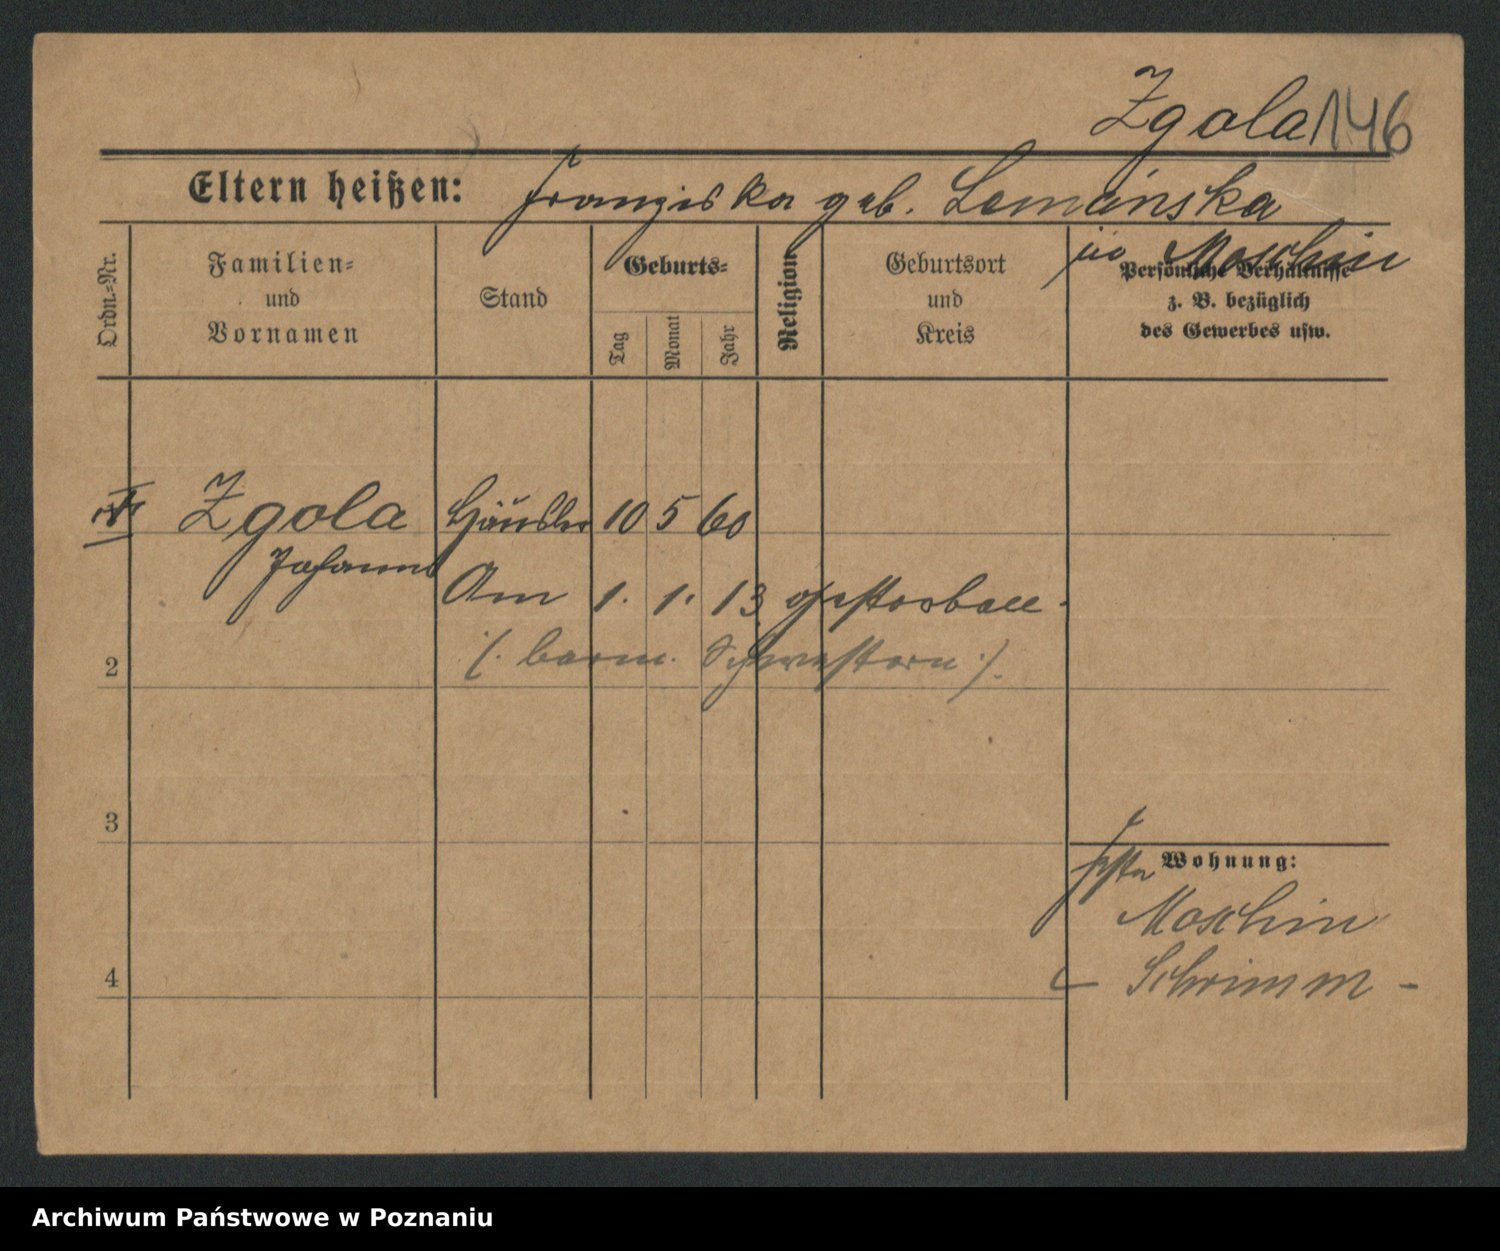 Zgola 146
Eltern heißen: Franziska geb. Lemanska
in Moschin
Ordn.-Nr.
Familien-
und
Vornamen
Stand
Geburts-
Tag
Monat
Jahr
Religion
Geburtsort
und
Kreis
Persönliche Verhältnisse
z. B. bezüglich
des Gewerbes usw.
Zgola Häusler 10 5 60
Johann
Am 1. 1. 13 gestorben.
(. barm. Schwestern .).
2
3
4
Wohnung:
Moschin
- Schrimm -
Archiwum Państwowe w Poznaniu